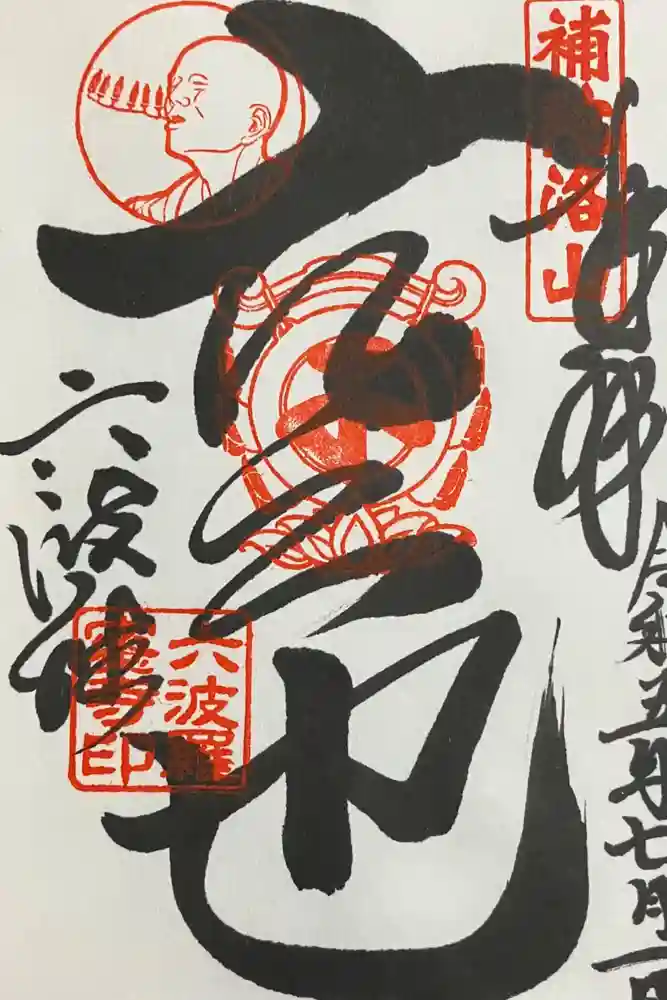 補陀洛山
奉拝
令和五年七月一日
空也
六波
六波羅
蜜寺印